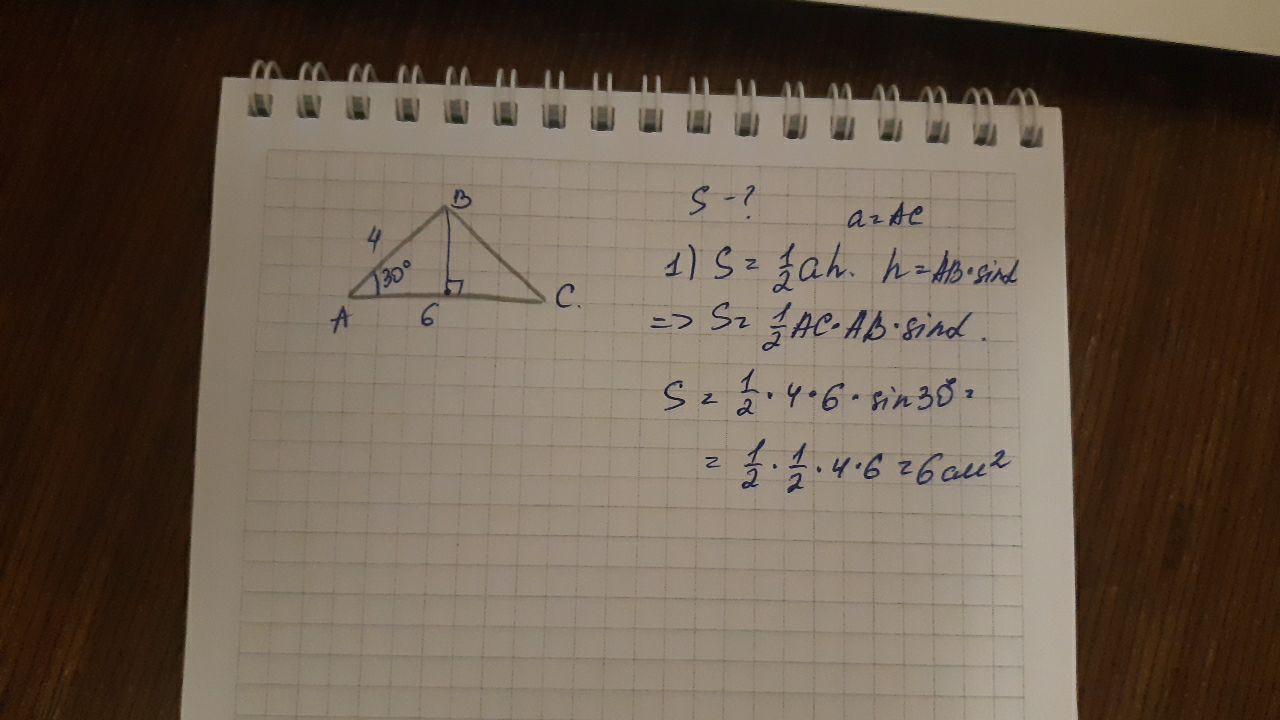 B
4
30°
A
6
C.
S - ?
a = AC
1) S = 1/2 ah. h = AB · sinα
=> S = 1/2 AC · AB · sinα.
S = 1/2 · 4 · 6 · sin30° =
= 1/2 · 1/2 · 4 · 6 = 6 см²